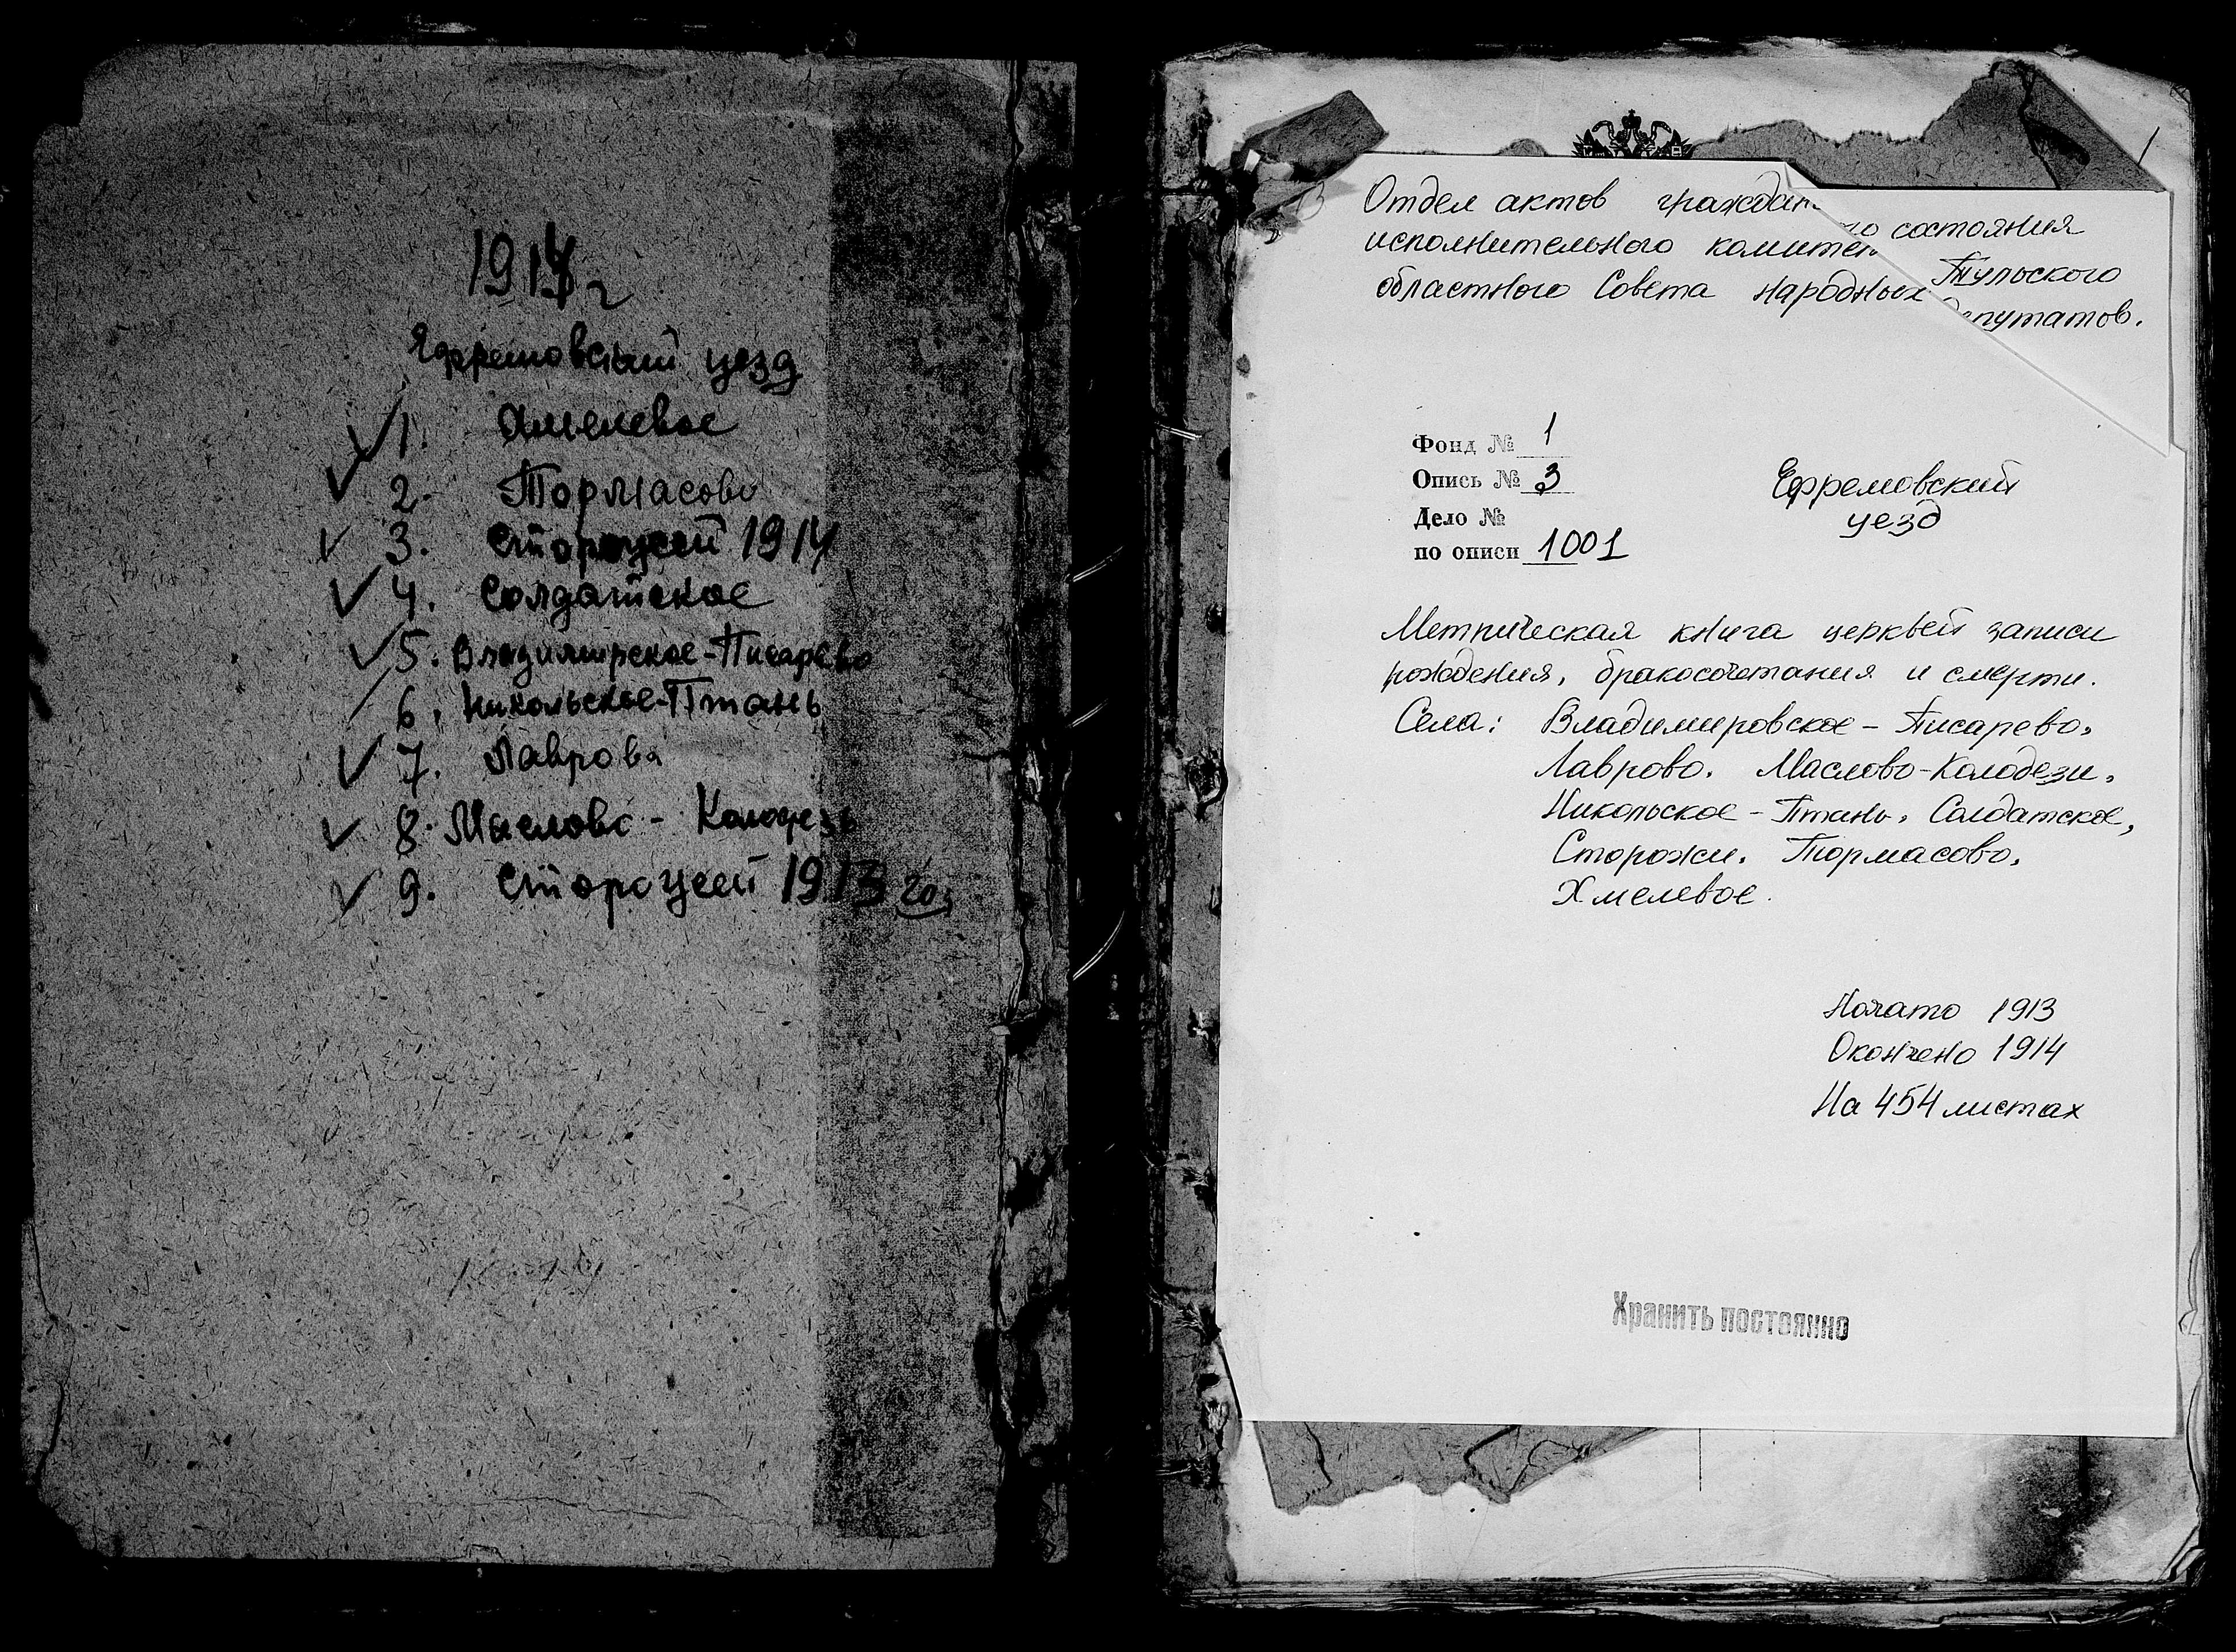 1914 г
Ефремовский уезд
1. Хмелевое
2. Тормасово
3. Сторожей 1914
4. Солдатское
5. Владимирское-Писарево
6. Никольское-Птань
7. Лаврова
8. Маслово - Колодезь
9. Сторожей 1913 год
1
Отдел актов граждан го состояния
исполнительного комитет Тульского
областного Совета народных депутатов.
Фонд № 1
Опись № 3
Дело №
по описи 1001
Ефремовский
уезд
Метрическая книга церквей записи
рождения, бракосочетания и смерти.
Села: Владимировское - Писарево,
Лаврово, Маслово-Колодези,
Никольское - Птань, Солдатское,
Сторожи, Тормасово,
Хмелевое.
Начато 1913
Окончено 1914
На 454 листах
Хранить постоянно